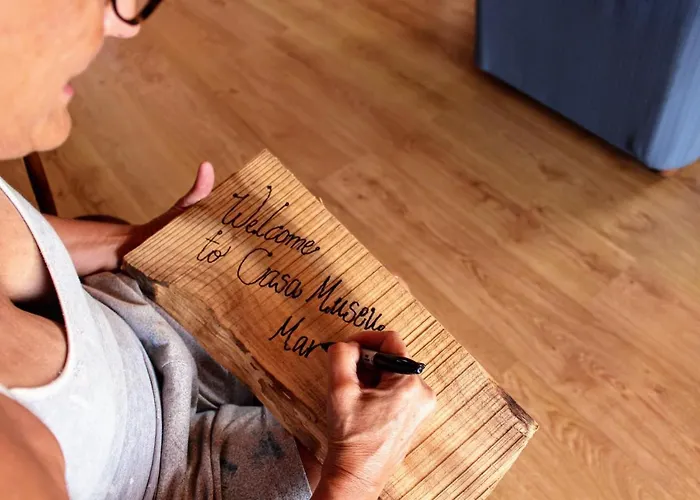 Welcome
to Casa Museu
Mar